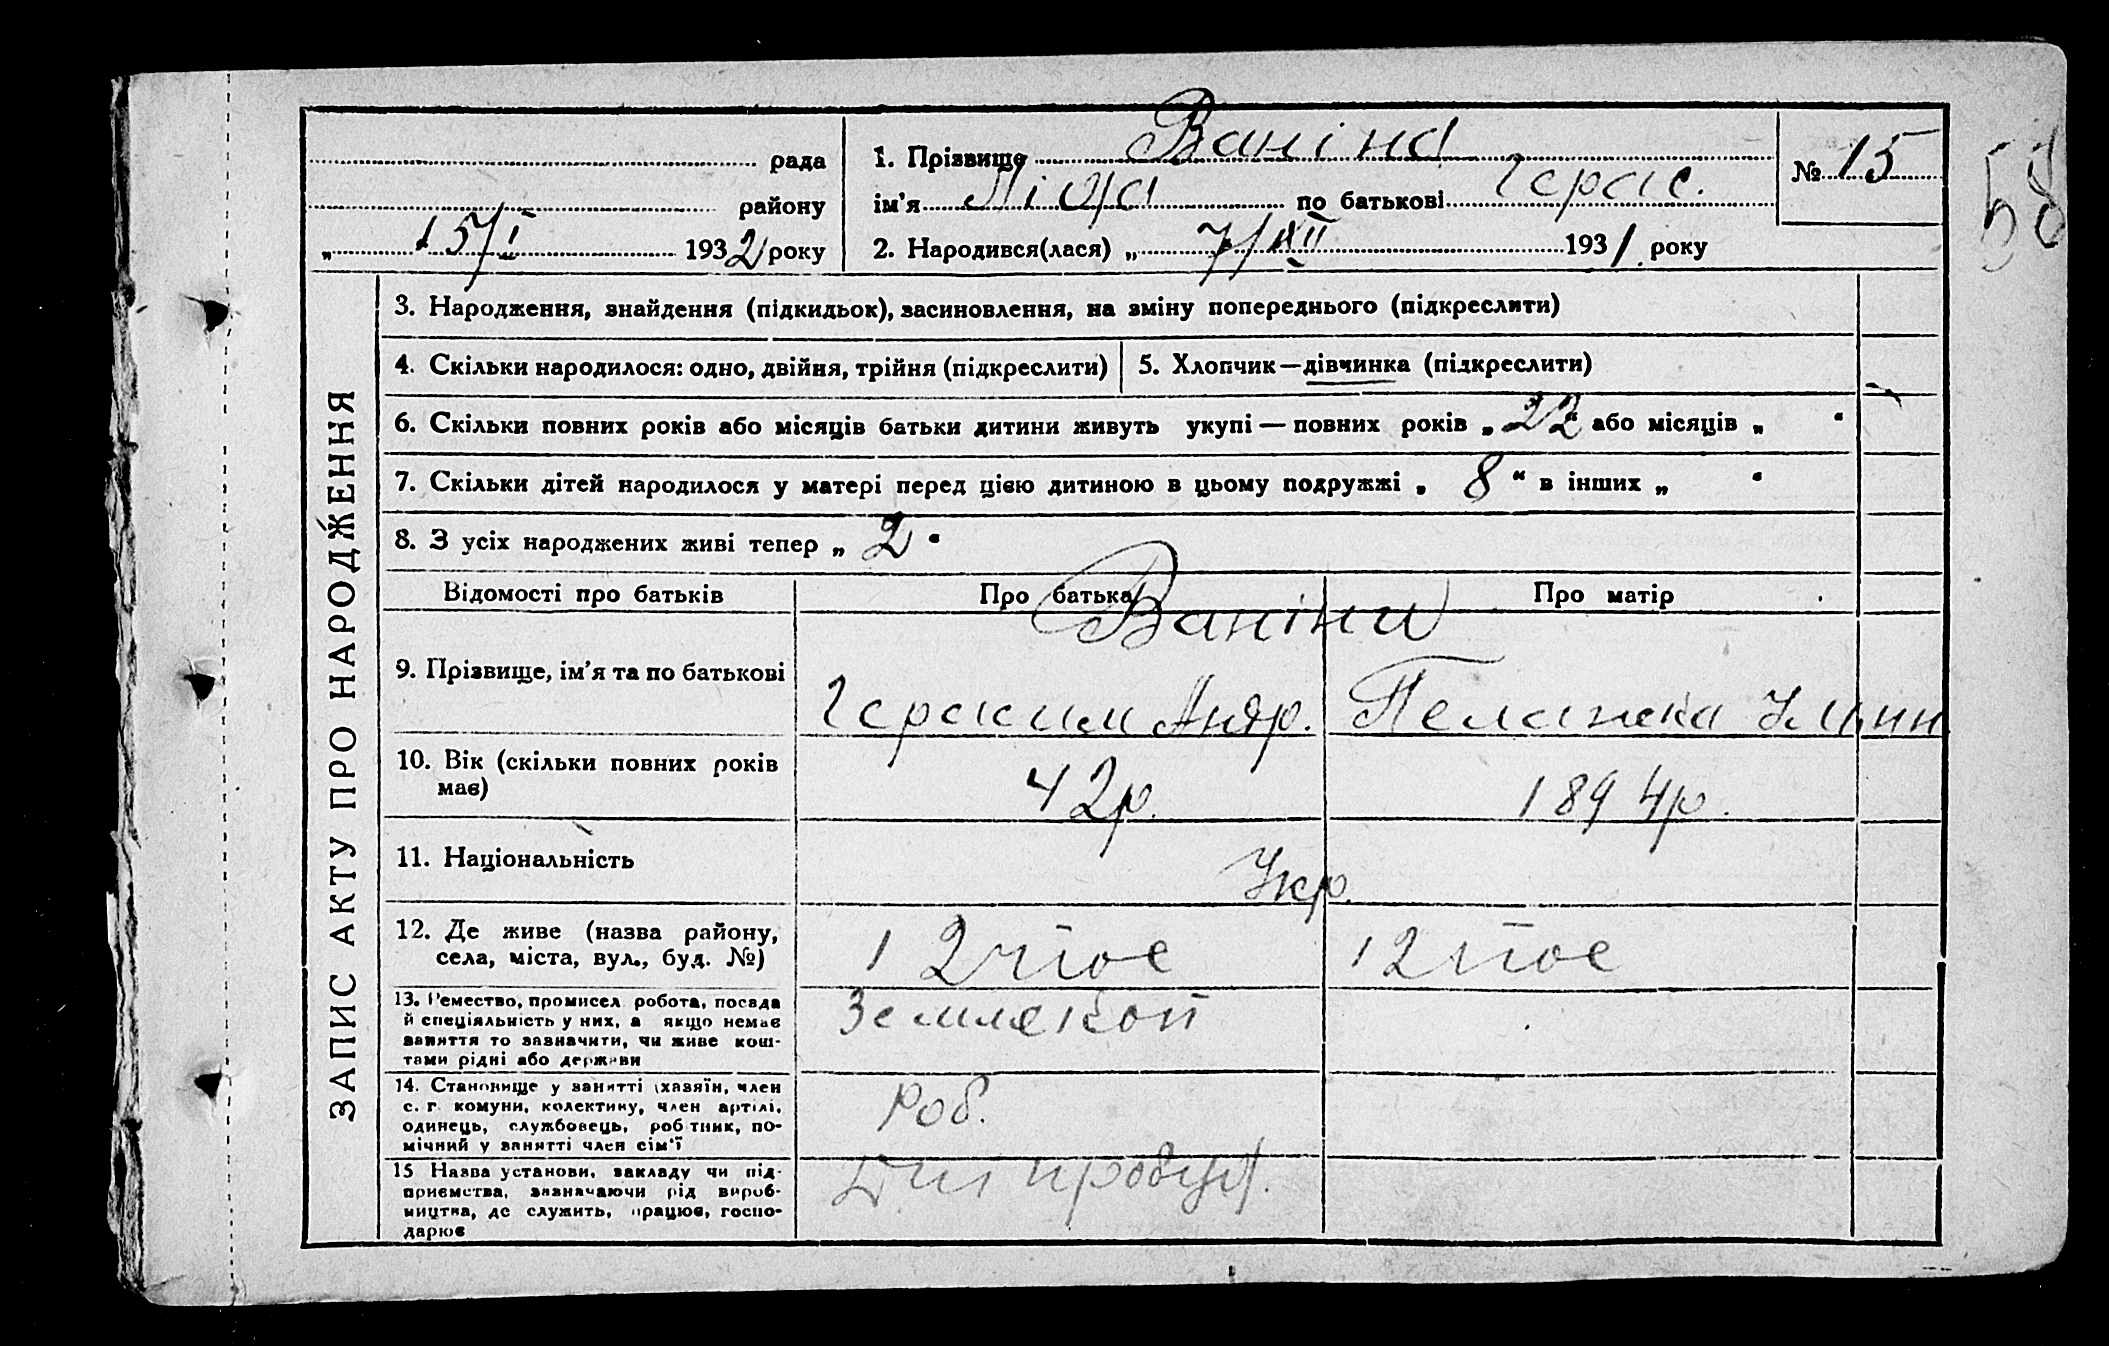 58
рада
району
„ 15/I 1932 року
1. Прізвище Ваніна
ім'я Ліда по батькові Герас.
№ 15
2. Народився(лася) „ 7/XII 1931 року
ЗАПИС АКТУ ПРО НАРОДЖЕННЯ
3. Народження, знайдення (підкидьок), засиновлення, на зміну попереднього (підкреслити)
4. Скільки народилося: одно, двійня, трійня (підкреслити)
5. Хлопчик—дівчинка (підкреслити)
6. Скільки повних років або місяців батьки дитини живуть укупі — повних років „ 22 “ або місяців „ “
7. Скільки дітей народилося у матері перед цією дитиною в цьому подружжі „ 8 “ в інших „ “
8. З усіх народжених живі тепер „ 2 “
Відомості про батьків
Про батька
Про матір
Ваніни
9. Прізвище, ім'я та по батькові
Гераким Андр.
Пелажка
10. Вік (скільки повних років
має)
42р.
1894р.
11. Національність
Укр.
12. Де живе (назва району,
села, міста, вул., буд. №)
12 пос
12 пос
13. Ремество, промисел робота, посада
й спеціяльність у них, а якщо немає
заняття то зазначити, чи живе кош-
тами рідні або держави
Землекоп
14. Становище у занятті (хазяїн, член
с. г. комуни, колективу, член артілі,
одинець, службовець, робітник, по-
мічний у занятті член сім'ї
Роб.
15 Назва установи, закладу чи під-
приємства, зазначаючи рід вироб-
ництва, де служить, працює, госпо-
дарює